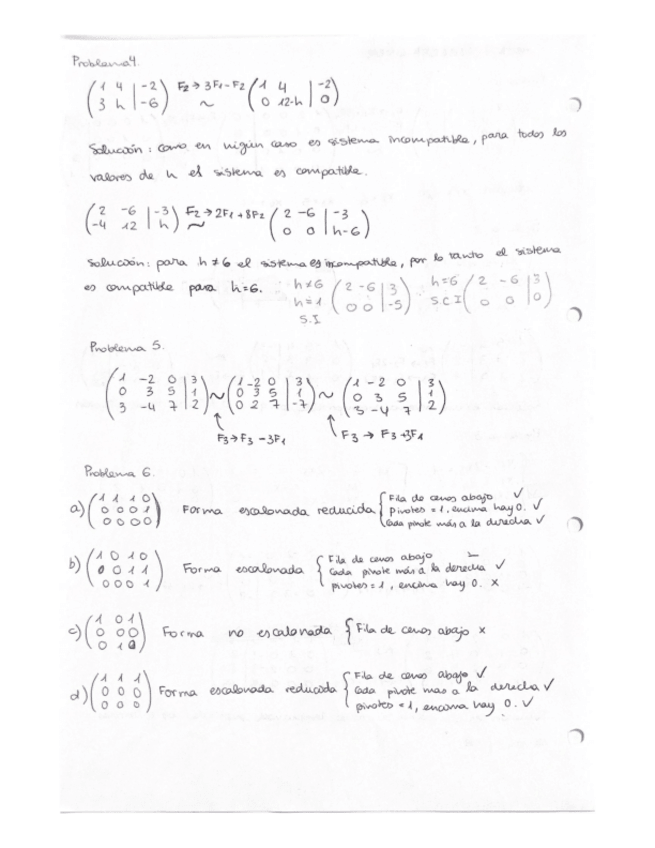 Problema 4.
(1 4 | -2
3 h | -6) F2 → 3F1 - F2 ~ (1 4 | -2
0 12-h | 0)
Solución: como en nigún caso es sistema incompatible, para todos los
valores de h el sistema es compatible.
(2 -6 | -3
-4 12 | h) F2 → 2F1 + 8F2 ~ (2 -6 | -3
0 0 | h-6)
Solución: para h ≠ 6 el sistema es incompatible, por lo tanto el sistema
es compatible para h=6. h≠6 h=1 S.I (2 -6 | 3
0 0 | -5) h=6 S.C.I (2 -6 | 3
0 0 | 0)
Problema 5.
(1 -2 0 | 3
0 3 5 | 1
3 -4 7 | 2) ~ (1 -2 0 | 3
0 3 5 | 1
0 2 7 | -7) ~ (1 -2 0 | 3
0 3 5 | 1
3 -4 7 | 2)
F3 → F3 - 3F1 F3 → F3 +3F1
Problema 6.
a) (1 1 1 0
0 0 0 1
0 0 0 0) Forma escalonada reducida { Fila de ceros abajo ✓
Pivotes = 1, encima hay 0. ✓
Cada pivote más a la derecha ✓
b) (1 0 1 0
0 0 1 1
0 0 0 1) Forma escalonada { Fila de ceros abajo –
Cada pivote más a la derecha ✓
pivotes = 1, encima hay 0. x
c) (1 0 1
0 0 0
0 1 0) Forma no escalonada { Fila de ceros abajo x
d) (1 1 1
0 0 0
0 0 0) Forma escalonada reducida { Fila de ceros abajo ✓
Cada pivote mas a la derecha ✓
pivotes = 1, encima hay 0. ✓